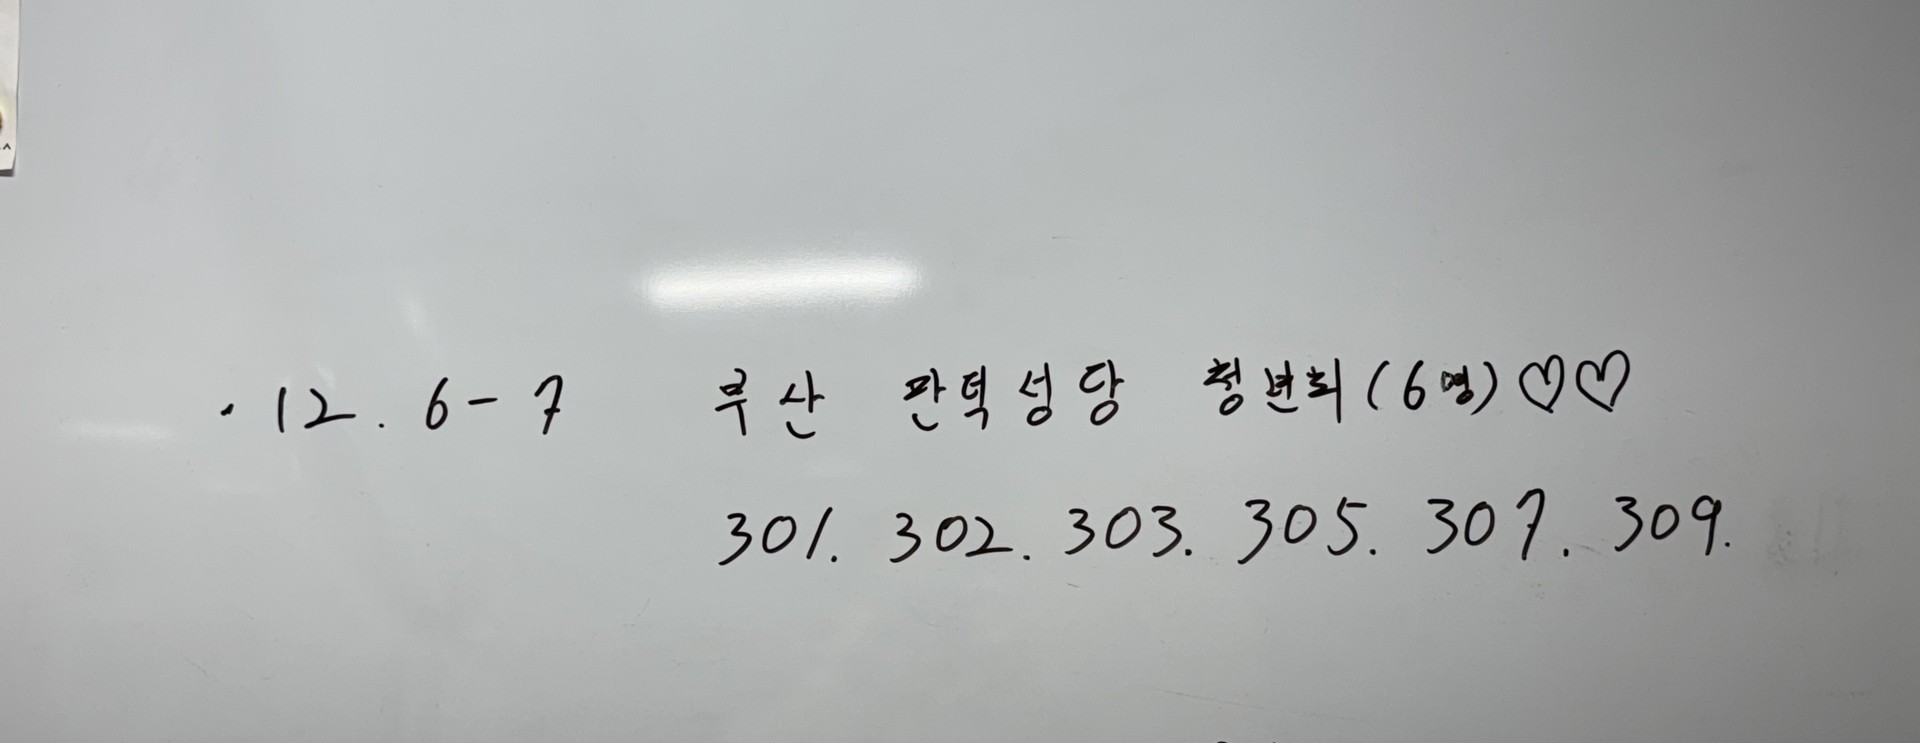 · 12. 6 - 7 부산 판덕성당 청년회 (6명) ♡♡
301. 302. 303. 305. 307. 309.